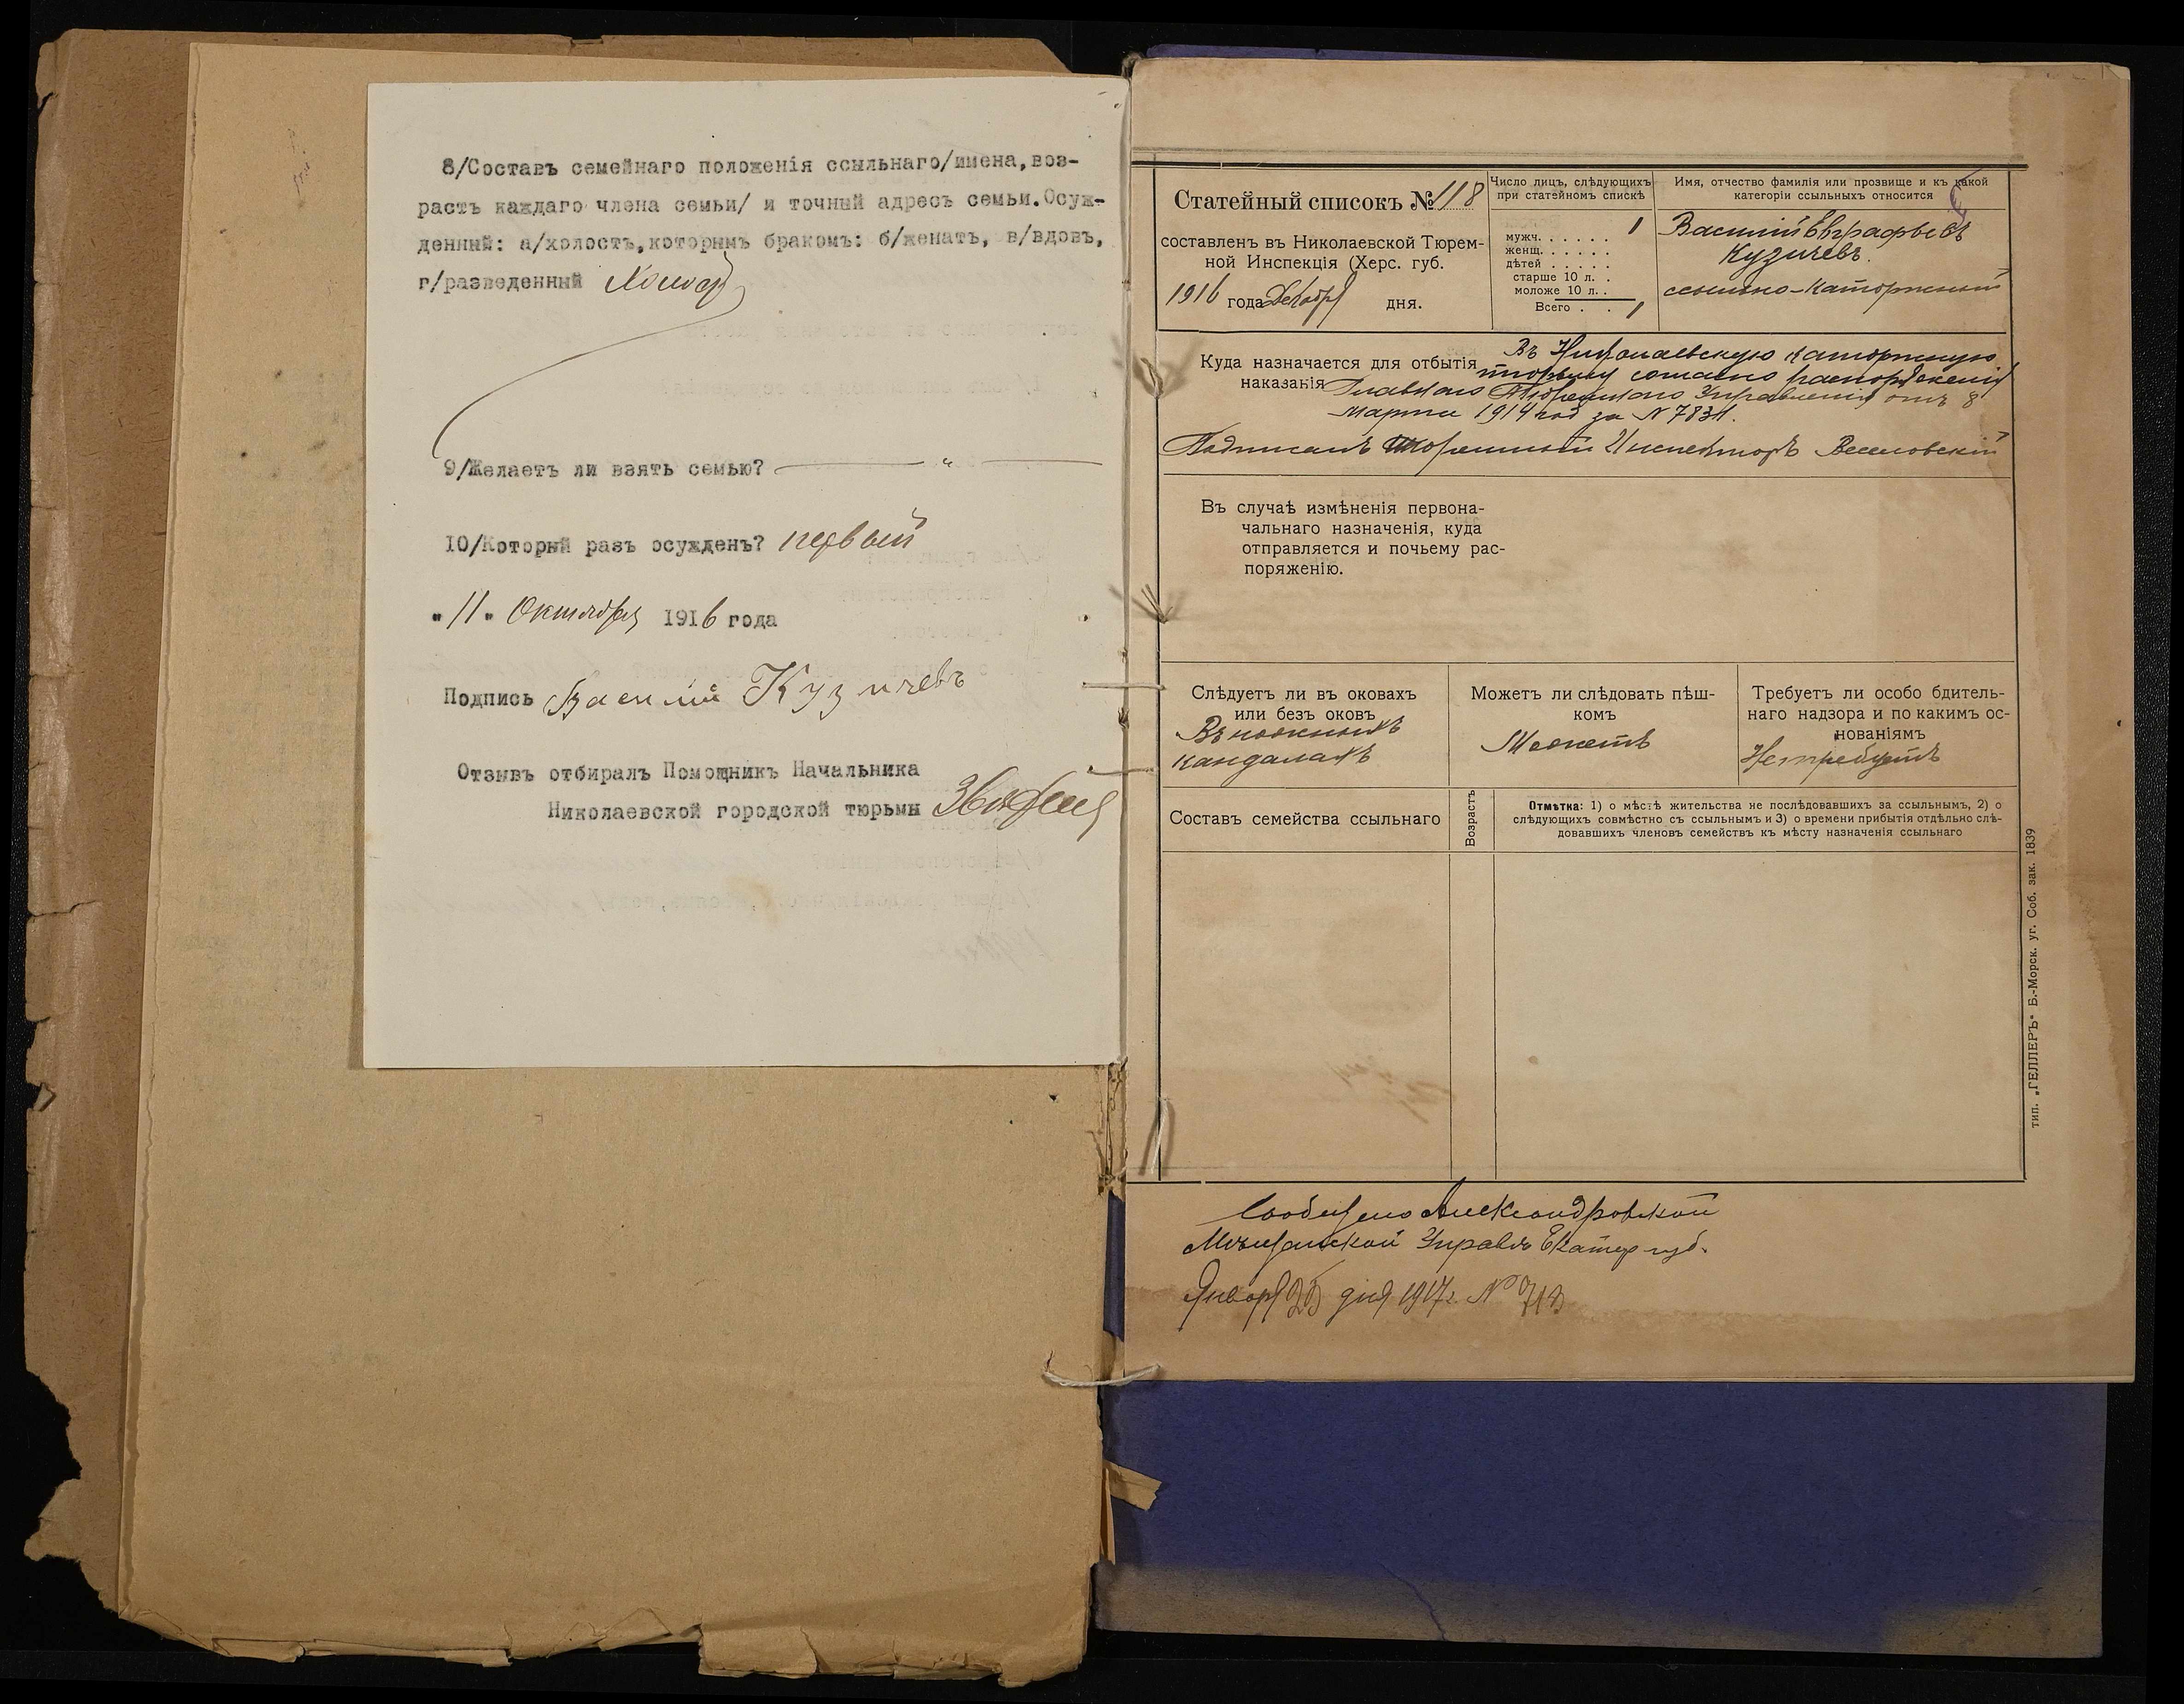 8/Составъ семейнаго положенія ссыльнаго/имена,воз-
растъ каждаго члена семьи/ и точный адресъ семьи.Осуж-
денный: а/холостъ,которымъ бракомъ: б/женатъ, в/вдовъ,
г/разведенный Холост
9/Желаетъ ли взять семью? — " —
10/Который разъ осужденъ? первый
"11" Октября 1916 года
Подпись Василий Кузичевъ
Отзывъ отбиралъ Помощникъ Начальника
Николаевской городской тюрьмы
Статейный списокъ № 118
составленъ въ Николаевской Тюрем-
ной Инспекція (Херс. губ.
1916 года Декабря дня.
Число лицъ, слѣдующихъ
при статейномъ спискѣ
мужч. . . . . . . 1
женщ. . . . . . .
дѣтей . . . . .
старше 10 л. .
моложе 10 л. .
Всего . . 1
Имя, отчество фамилія или прозвище и къ какой
категоріи ссыльныхъ относится
Василій Евграфьевъ
Кузичевъ.
ссыльно-каторжный
Куда назначается для отбытія
наказанія
Въ Николаевскую каторжную
тюрьму согласно распоряженія
Главнаго Тюремнаго Управленія отъ 8
марта 1914 год за N 7831.
Подписалъ Тюремный Инспекторъ Веселовскій
Въ случаѣ измѣненія первона-
чальнаго назначенія, куда
отправляется и почьему рас-
поряженію.
Слѣдуетъ ли въ оковахъ
или безъ оковъ
Въ ножныхъ
кандалахъ
Можетъ ли слѣдовать пѣш-
комъ
Можетъ
Требуетъ ли особо бдитель-
наго надзора и по какимъ ос-
нованіямъ
Не требуетъ
Составъ семейства ссыльнаго
Возрастъ
Отмѣтка: 1) о мѣстѣ жительства не послѣдовавшихъ за ссыльнымъ, 2) о
слѣдующихъ совмѣстно съ ссыльнымъ и 3) о времени прибытія отдѣльно слѣ-
довавшихъ членовъ семействъ къ мѣсту назначенія ссыльнаго
тип. „ГЕЛЛЕРЪ" Б.-Морск. уг. Соб. зак. 1839
Сообщено Александровской
Мѣщанской Управѣ Екатер губ.
Января 25 дня 1917г. № 713